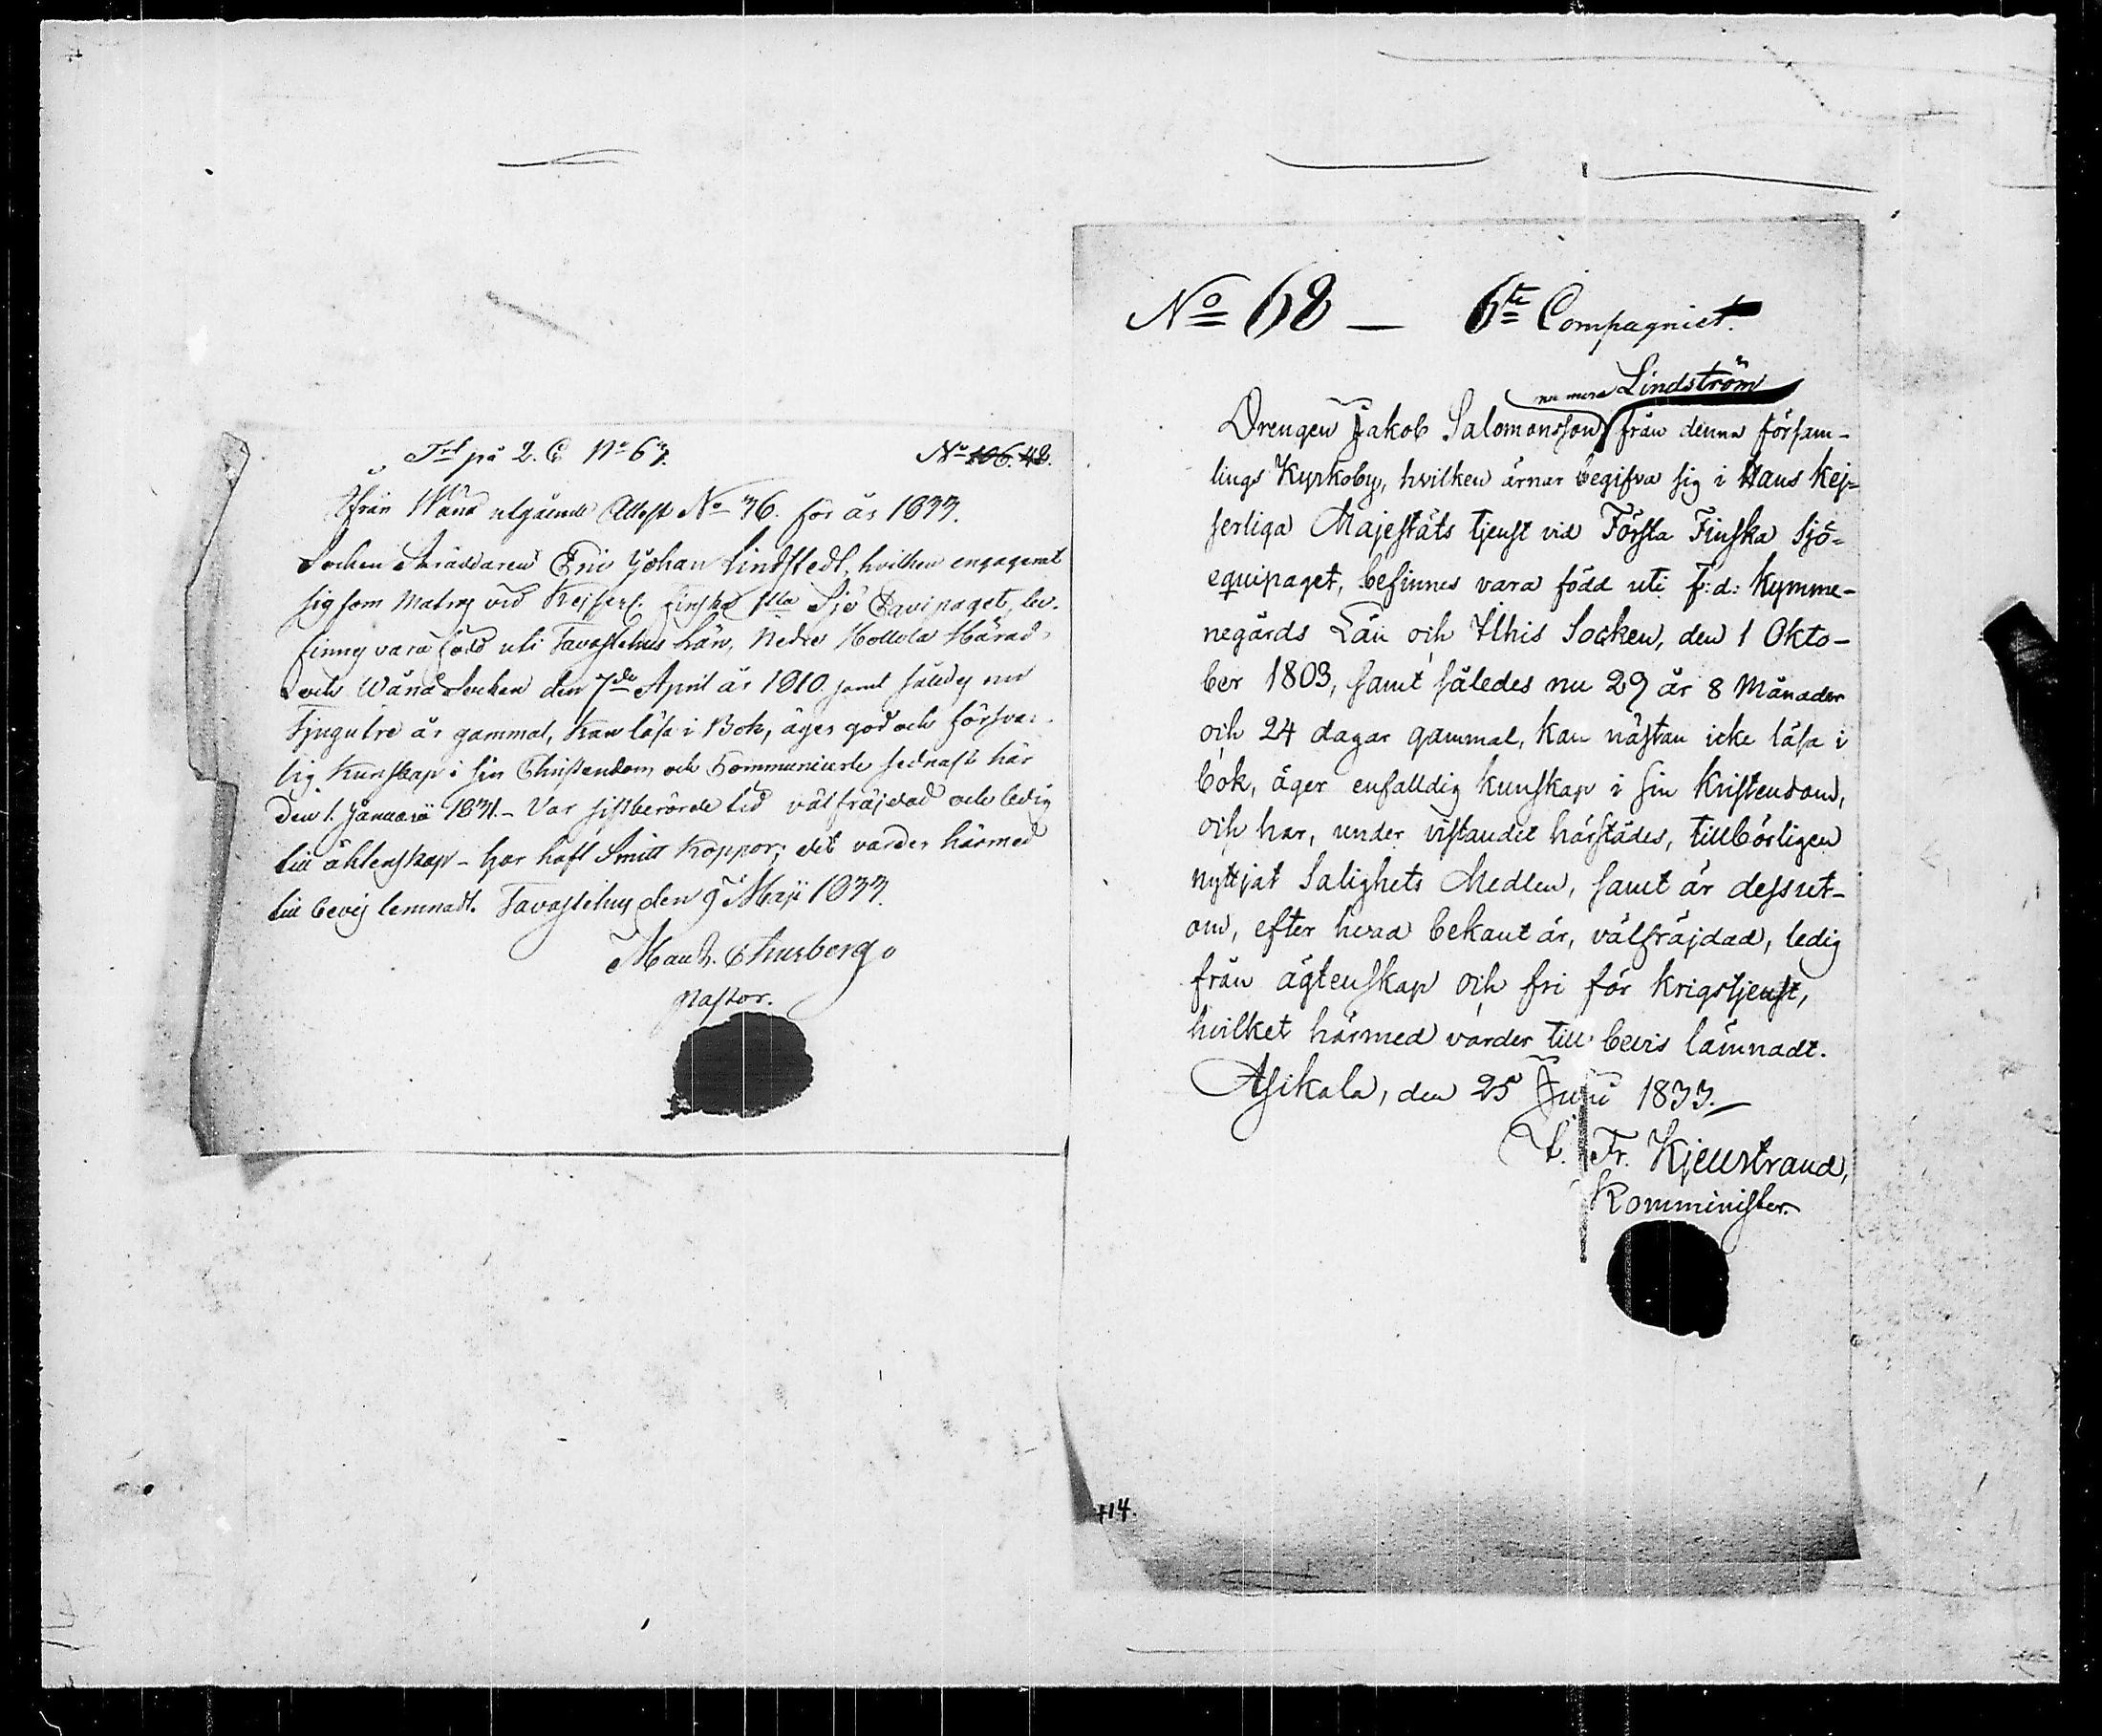 Trl på 2. C. No 67. No 106. 48.
Ifrån Wånå utgående Attest No 36. för år 1833.
Socken Skräddaren Eric Johan Lindstedt, hvilken engagerat
sig som Matros vid Kejserl. Finska 1sta Sjö Equipaget, be-
finnes vara född uti Tavastehus Län, Nedre Hollola Härad
och Wånå Socken den 7de April år 1810. samt således nu
Tjugutre år gammal, kan läsa i Bok, äger god och försvar-
lig kunskap i sin Christendom och Communicerte sednast här
den 1. Januarii 1831. - Var sistberörde tid välfräjdad och ledig
till äktenskap - har haft Smitt Koppor; det varder härmed
till bevis lemnadt. Tavastehus den 9 Maji 1833.
Thusberg.
Pastor.
No 68 — 6te Compagniet.
nu mera Lindström
Drengen Jakob Salomonsson från denna försam-
lings Kyrkoby, hvilken ärnar begifva sig i Hans Kej-
serliga Majestäts tjenst vid Första Finska Sjö-
equipaget, befinnes vara född uti f:d: Kymme-
negårds Län och Ithis Socken, den 1 Okto-
ber 1803, samt således nu 29 år 8 Månader
och 24 dagar gammal, kan nästan icke läsa i
bok, äger enfalldig kunskap i sin Kristendom,
och har, under vistandet härstädes, tillbörligen
nyttjat Salighets Medlen, samt är dessut-
om, efter hvad bekant är, välfräjdad, ledig
från ägtenskap och fri för krigstjenst,
hvilket härmed varder till bevis lämnadt.
Asikala, den 25 Juni 1833.
Fr. Kjellstrand,
Komminister.
414.